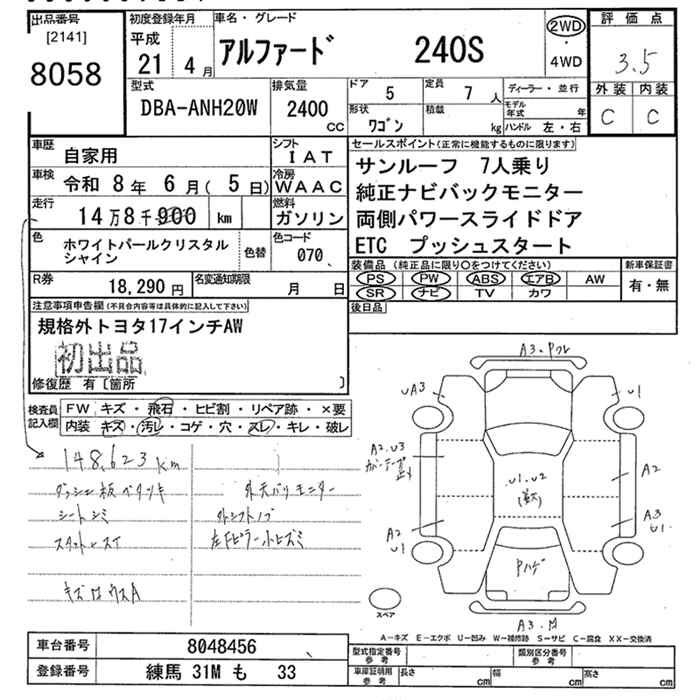 出品番号
[2141]
8058
初度登録年月
平成
21 4月
車名・グレード
アルファード 240S
2WD
・
4WD
評価点
3.5
外装 内装
C C
型式
DBA-ANH20W
排気量
2400
cc
ドア
5
定員
7 人
形状
ワゴン
積載
kg
ディーラー・並行
モデル年式 年
ハンドル 左・右
車歴
自家用
シフト
IAT
車検
令和 8年 6月( 5日)
冷房
WAAC
走行
14万8千900 km
燃料
ガソリン
色
ホワイトパールクリスタル
シャイン
色替
色コード
070
R券
18,290円
名変通知期限
月 日
セールスポイント(正常に機能するものに限ります)
サンルーフ 7人乗り
純正ナビバックモニター
両側パワースライドドア
ETC プッシュスタート
装備品(純正品に限り○をつけてください)
PS PW ABS エアB AW
SR ナビ TV カワ
新車保証書
有・無
後日品
注意事項申告欄(不具合内容等は具体的に記入して下さい)
規格外トヨタ17インチAW
初出品
修復歴 有〔箇所 〕
検査員
記入欄
FW キズ・飛石・ヒビ割・リペア跡・×要
内装 キズ・汚レ・コゲ・穴・スレ・キレ・破レ
148,623km
ダッシュ板ベタツキ
シートシミ
外シフトノブ
キズ
A3・
UA3
U1
A2.U3
A2
U1
U1.U2
A2
A3
U1
Pハゲ
A3・
スペア
A-キズ E-エクボ U-凹み W-補修跡 S-サビ C-腐食 XX-交換済
車台番号
8048456
登録番号
練馬 31M も 33
型式指定番号
参考
類別区分番号
参考
車庫証明用
参考
長さ cm
幅 cm
高さ cm